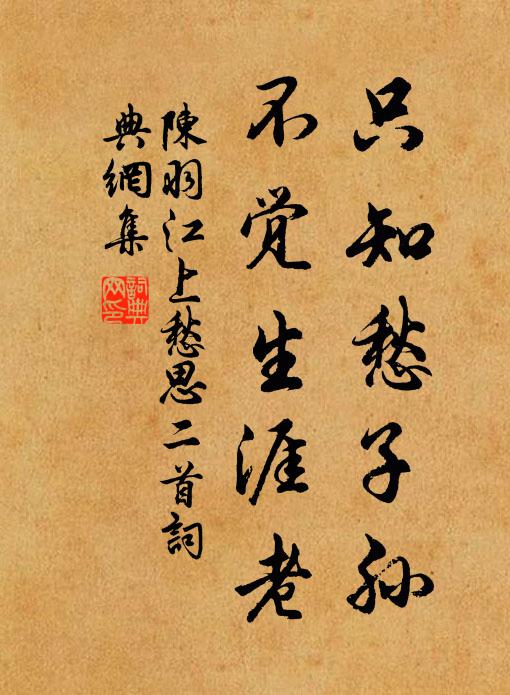 只知愁子孙
不觉生涯老
陳羽江上愁思二首詞
典網集
詞典網印